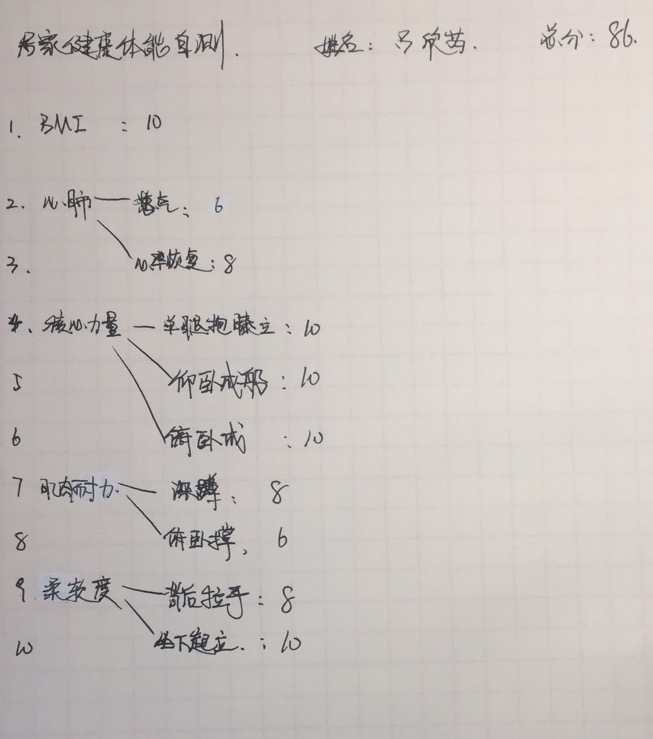 居家健康体能自测. 姓名: 吕欣苗. 总分: 86.
1. BMI : 10
2. 心肺 憋气: 6
3. 心率恢复: 8
4. 核心力量 单腿抱膝立: 10
5 仰卧成船: 10
6 俯卧成 : 10
7 肌肉耐力. 深蹲: 8
8 俯卧撑, 6
9 柔软度 背后拉手: 8
10 坐下起立. : 10